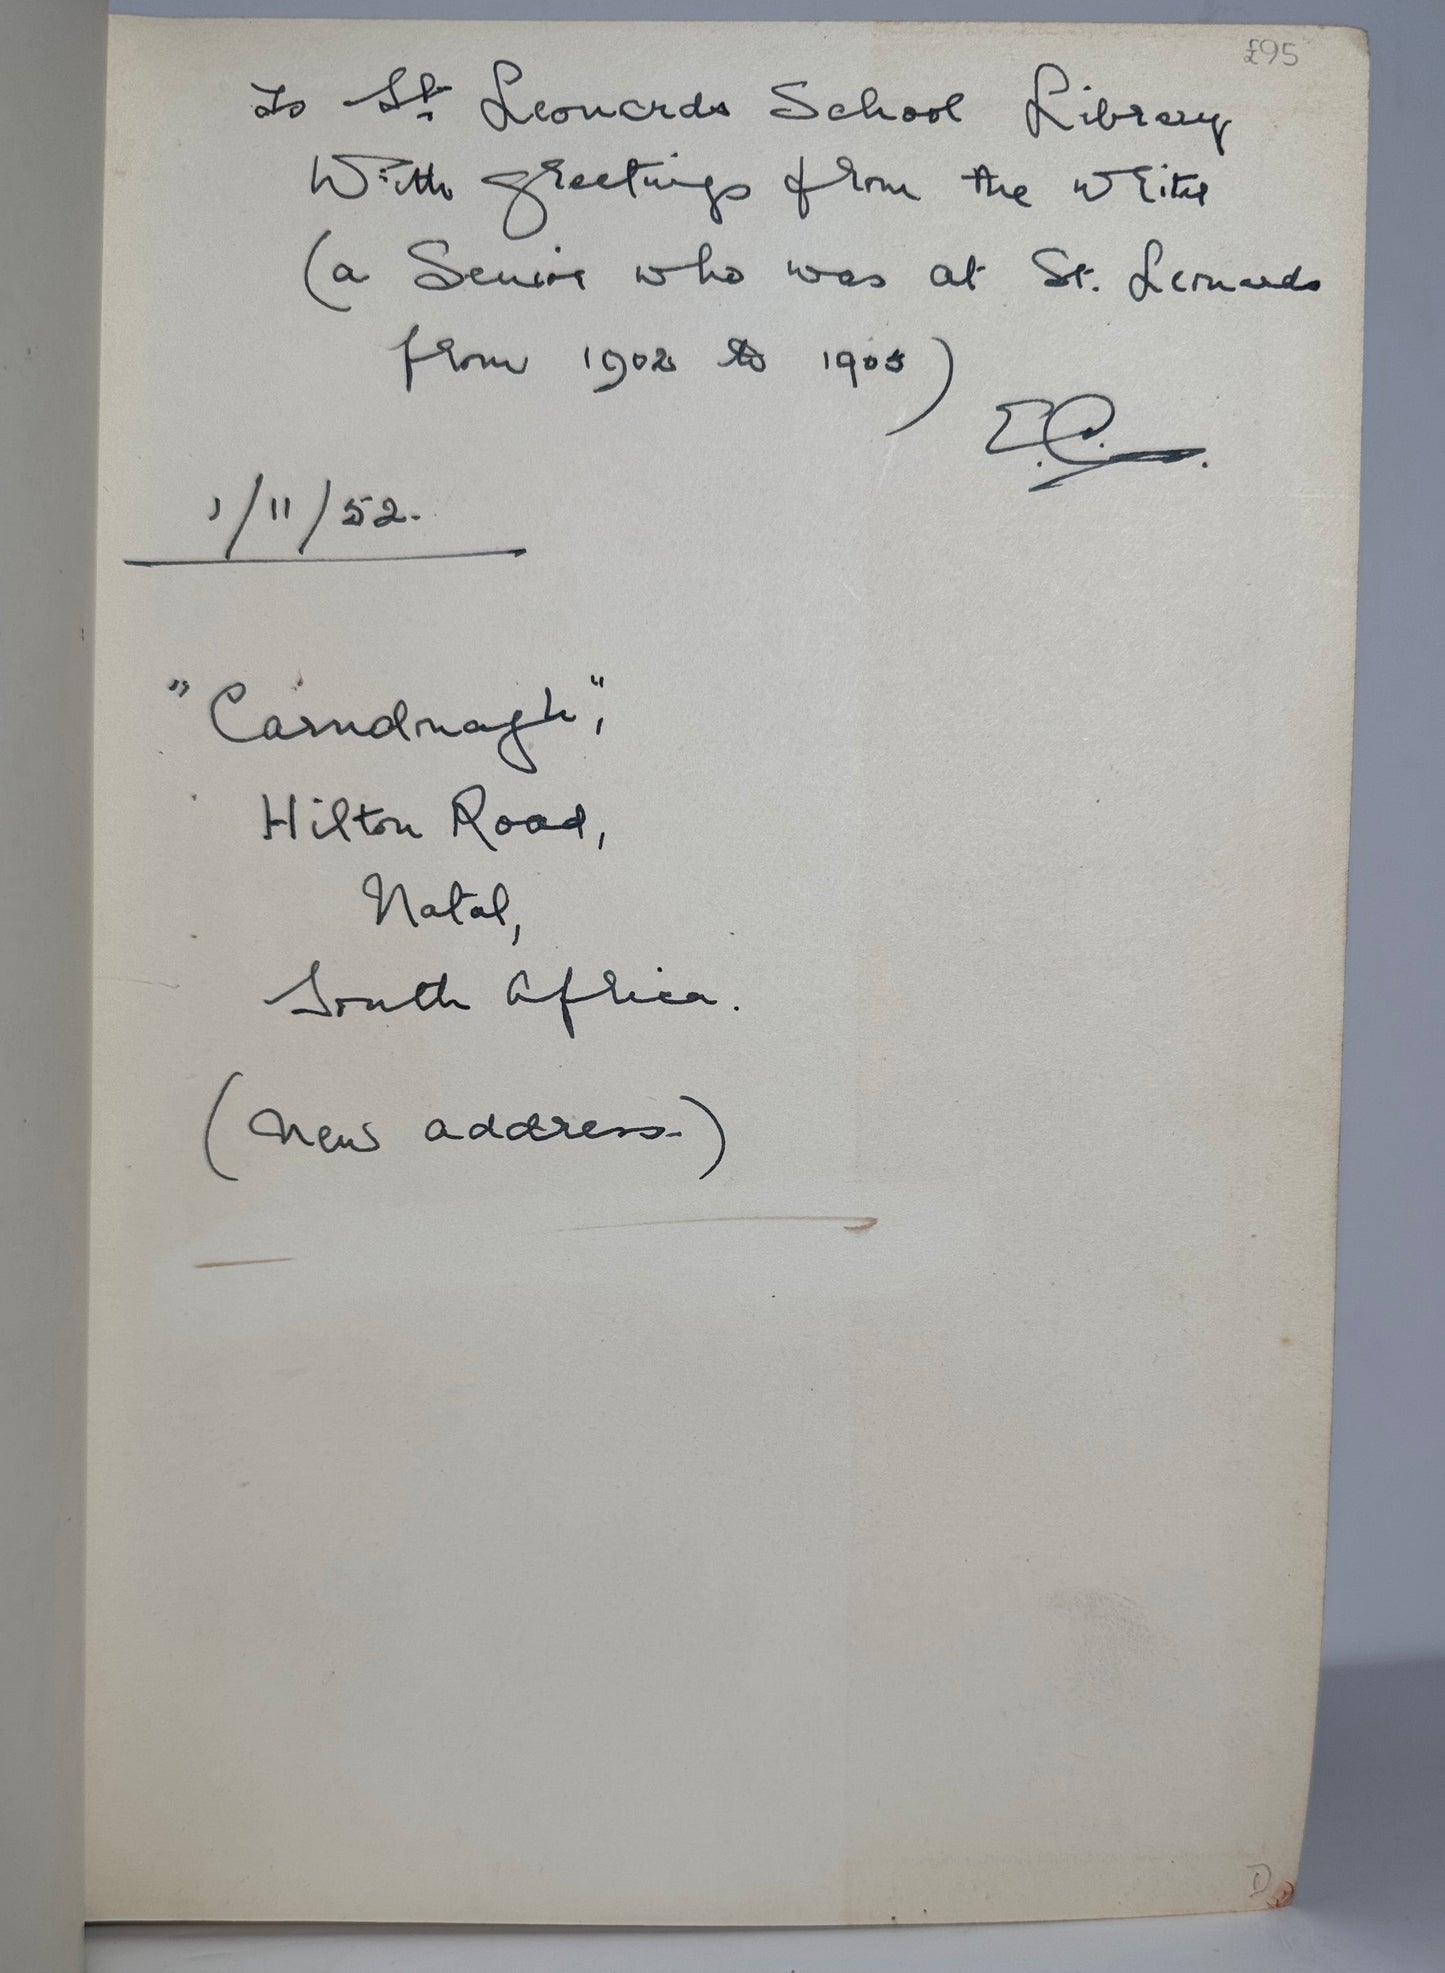 £95
To St. Leonards School Library
With greetings from the writer
(a Senior who was at St. Leonards
from 1902 to 1905)
E.C.
1/11/52.
"Carndonagh",
Hilton Road,
Natal,
South Africa.
(New address.)
D